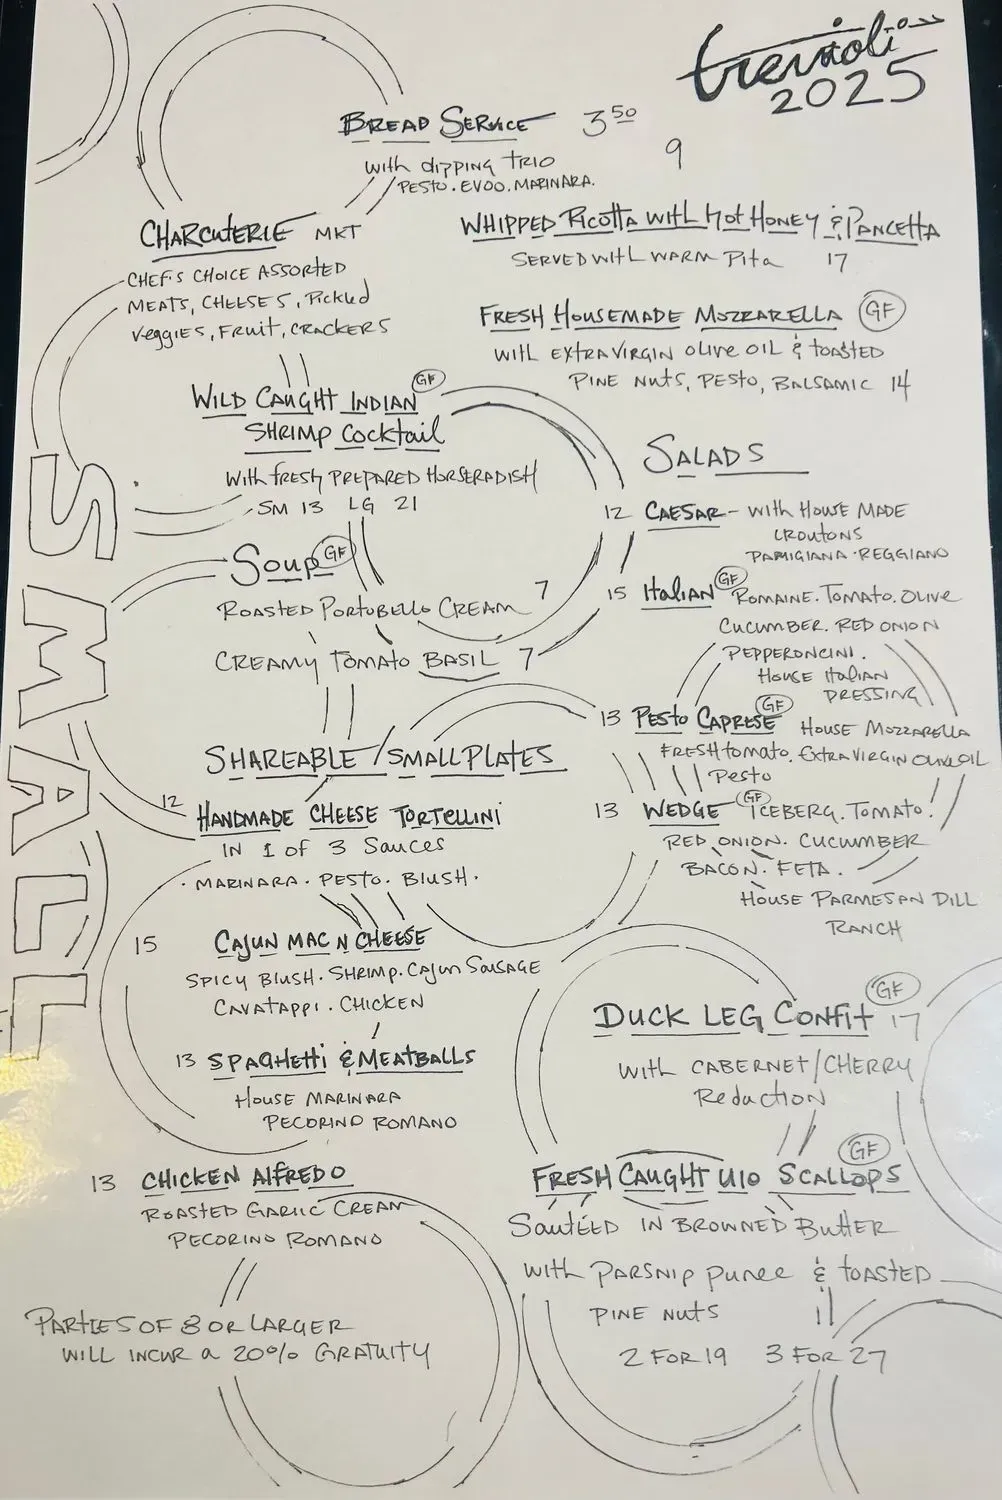 trevioli
2025
BREAD SERVICE 3.50
with dipping TRIO 9
PESTO. EVOO. MARINARA.
CHARCUTERIE MKT
CHEF'S CHOICE ASSORTED
MEATS, CHEESES, Pickled
Veggies, FRUIT, CRACKERS
WHIPPED RICOTTA WITH HOT HONEY & PANCETTA
SERVED WITH WARM Pita 17
FRESH HOUSEMADE MOZZARELLA GF
WITH EXTRA VIRGIN OLIVE OIL & TOASTED
PINE NUTS, PESTO, BALSAMIC 14
WILD CAUGHT INDIAN GF
SHRIMP COCKTAIL
WITH FRESH PREPARED HORSERADISH
SM 13 LG 21
SOUP GF
ROASTED PORTOBELLO CREAM 7
CREAMY TOMATO BASIL 7
SALADS
12 CAESAR - WITH HOUSE MADE
CROUTONS
PARMIGIANA · REGGIANO
15 ITALIAN GF ROMAINE. TOMATO. OLIVE
CUCUMBER. RED ONION
PEPPERONCINI.
HOUSE ITALIAN
DRESSING
13 PESTO CAPRESE GF HOUSE MOZZARELLA
FRESH TOMATO. EXTRA VIRGIN OLIVE OIL
PESTO
13 WEDGE GF ICEBERG. TOMATO.
RED ONION. CUCUMBER
BACON. FETA.
HOUSE PARMESAN DILL
RANCH
SMALL
SHAREABLE/SMALL PLATES
12 HANDMADE CHEESE TORTELLINI
IN 1 of 3 Sauces
· MARINARA · PESTO · BLUSH ·
15 CAJUN MAC N CHEESE
SPICY BLUSH · SHRIMP. CAJUN SAUSAGE
CAVATAPPI. CHICKEN
13 SPAGHETTI & MEATBALLS
HOUSE MARINARA
PECORINO ROMANO
13 CHICKEN ALFREDO
ROASTED GARLIC CREAM
PECORINO ROMANO
PARTIES OF 8 OR LARGER
WILL INCUR a 20% GRATUITY
DUCK LEG CONFIT GF 17
WITH CABERNET/CHERRY
Reduction
FRESH CAUGHT U10 SCALLOPS GF
SAUTÉED IN BROWNED BUTTER
WITH PARSNIP PUREE & TOASTED
PINE NUTS
2 FOR 19 3 FOR 27